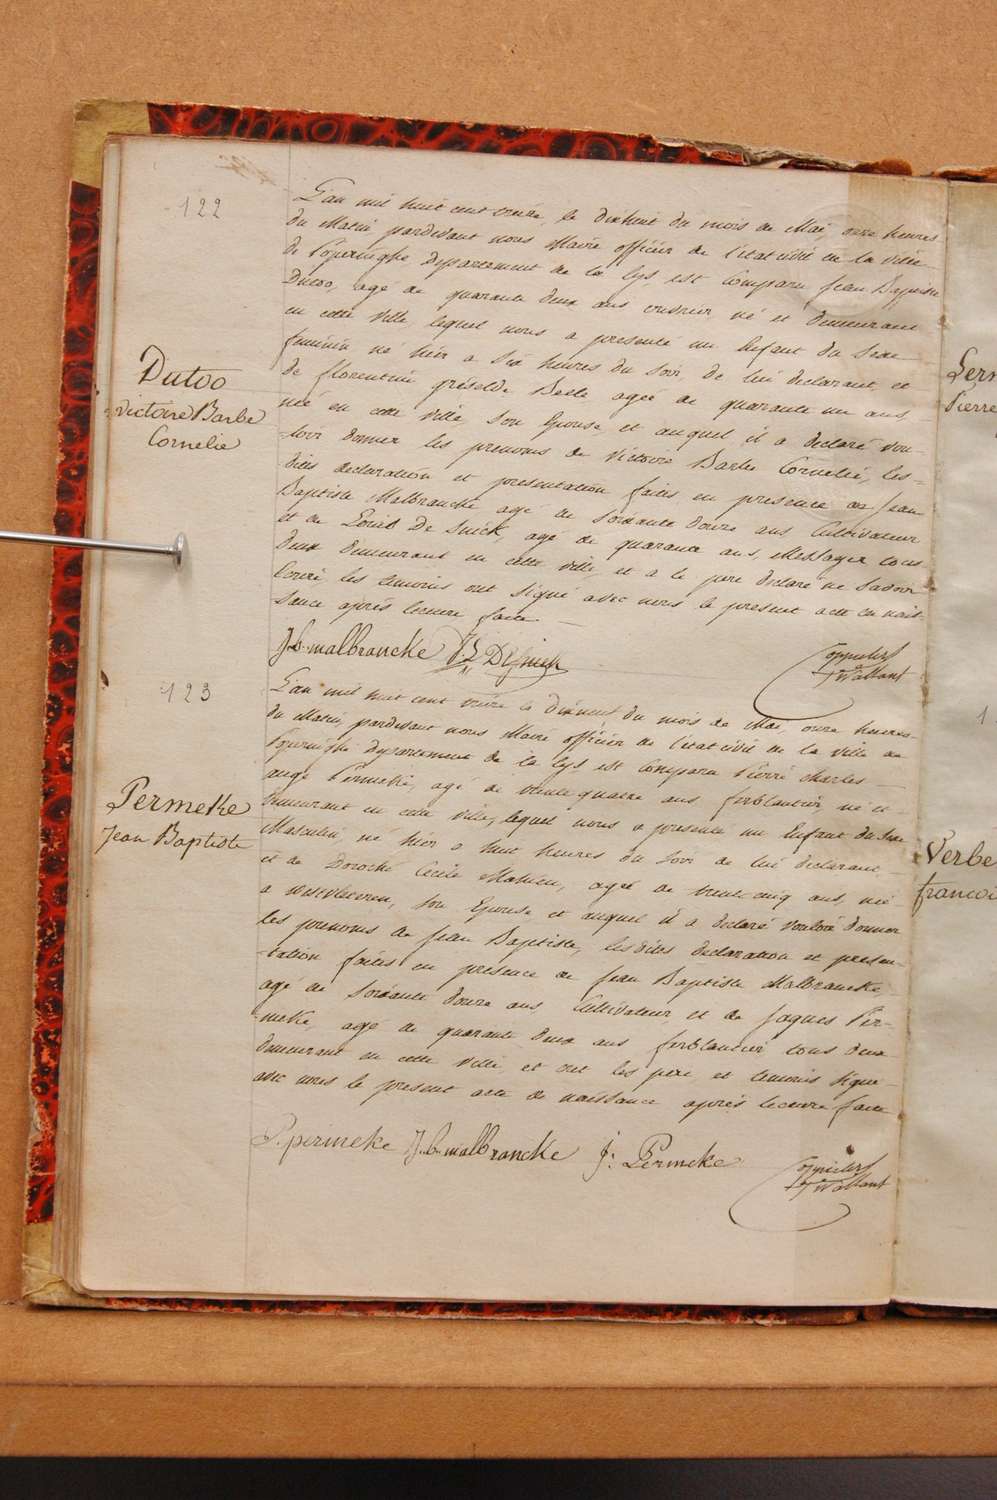 122
L'an mil huit cent treize, le dixhuit du mois de Mai, onze heures
du Matin pardevant nous Maire officier de l'etat civil de la ville
de Poperinghe departement de la Lys est Comparu Jean Baptiste
Dutoo, agé de quarante deux ans ouvrier né et demeurant
en cette ville, lequel nous a presenté un Enfant du Sexe
feminin né hier a six heures du Soir, de lui declarant, et
de florentine griselde Belle agée de quarante un ans
née en cette ville, Son Epouse, et auquel il a declaré vou-
-loir donner les prenoms de Victoire Barbe Cornelie, les-
dites declaration et presentation faites en presence de Jean
Baptiste Malbrancke agé de Soixante douze ans Cultivateur
et de Louis De Snick, agé de quarante ans, Messager tous
deux demeurant en cette ville, et a le pere declaré ne Savoir
Ecrire les temoins ont Signé avec nous le present acte de nais-
Sance après lecture faite
Dutoo
Victoire Barbe
Cornelie
J.b. malbrancke DeSnick
123
L'an mil huit cent treize le dixhuit du mois de Mai, onze heures
du Matin, pardevant nous Maire officier de l'etat civil de la ville de
Poperinghe departement de la Lys est Comparu Pierre charles
ange Permeke, agé de trente quatre ans ferblantier, né et
demeurant en cette ville, lequel nous a presenté un Enfant du Sexe
Masculin, né hier a huit heures du Soir de lui declarant
et de Dorothé Cecile Mahieu, agée de trente cinq ans, née
a westvleteren, Son Epouse et auquel il a declaré vouloir donner
les prenoms de Jean Baptiste, lesdites declaration et presen-
-tation faites en presence de Jean Baptiste Malbrancke,
agé de Soixante douze ans Cultivateur, et de Jaques Per-
-meke, agé de quarante deux ans ferblantier tous deux
demeurant en cette ville, et ont les pere et temoins Signé
avec nous le present acte de naissance après lecture faite
Permeke
Jean Baptiste
P. permeke J.b. malbrancke J: Permeke
Pierre
1
Verbe
francoi